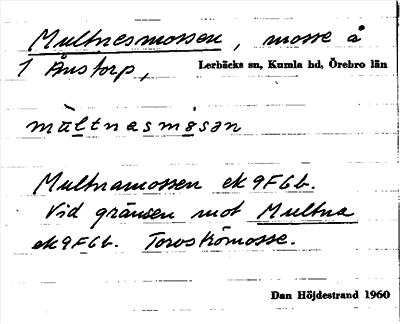 Multnesmossen, mosse å
1 Ånstorp, Lerbäcks sn, Kumla hd, Örebro län
mu̲ltnasmo̲sən
Multnamossen ek 9F6b.
Vid gränsen mot Multna
ek 9F6b. Torvströmosse.
Dan Höjdestrand 1960